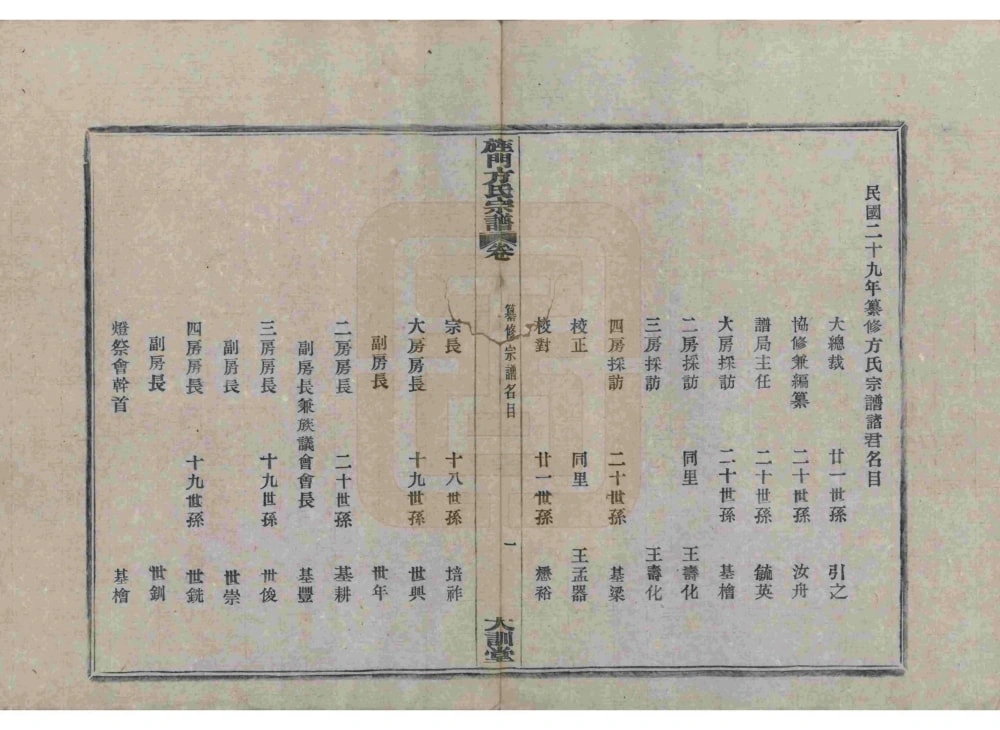 民國二十九年纂修方氏宗譜諸君名目
大總裁 廿一世孫 引之
協修兼編纂 二十世孫 汝舟
譜局主任 二十世孫 毓英
大房採訪 二十世孫 基檜
二房採訪 同里 王壽化
三房採訪 王壽化
四房採訪 二十世孫 基梁
校正 同里 王孟器
校對 廿一世孫 懋裕
旌門方氏宗譜 卷
纂修宗譜名目 一
大訓堂
宗長 十八世孫 培祚
大房房長 十九世孫 世興
副房長 世年
二房房長 二十世孫 基耕
副房長兼族議會會長 基豐
三房房長 十九世孫 世俊
副房長 世崇
四房房長 十九世孫 世銑
副房長 世釧
燈祭會幹首 基檜